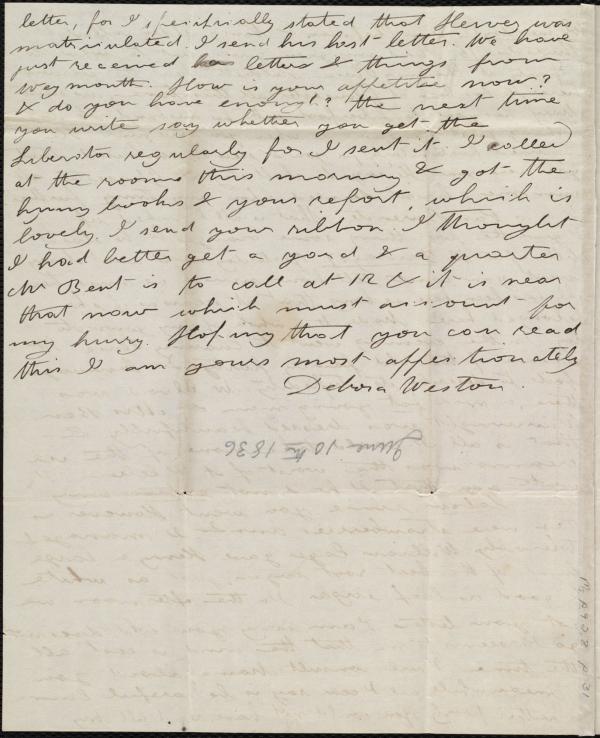 letter, for I specifically stated that Hervey was
matriculated. I send his last letter. We have
just received letters & things from
Weymouth. How is your appetite now?
& do you have enough? The next time
you write say whether you get the
Liberator regularly for I sent it. I called
at the rooms this morning & got the
hymn books & your report, which is
lovely. I send your ribbon. I thought
I had better get a yard & a quarter
Mr Bent is to call at 12 & it is near
that now which must account for
my hurry. Hoping that you can read
this I am yours most affectionately
Debora Weston.
June 10th 1836